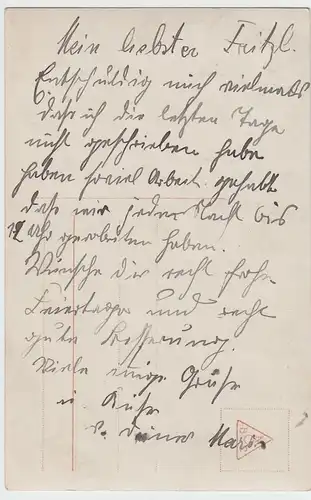 Mein liebster Fritzl.
Entschuldig mich vielmals
dass ich die letzten Tage
nicht geschrieben habe
haben soviel Arbeit gehabt
dass wir jeder Nacht bis
12 Uhr gearbeitet haben.
Wünsche dir recht frohe
Feiertage und recht
gute Besserung.
Viele innige Grüße
u. Küsse
v. deiner Marie